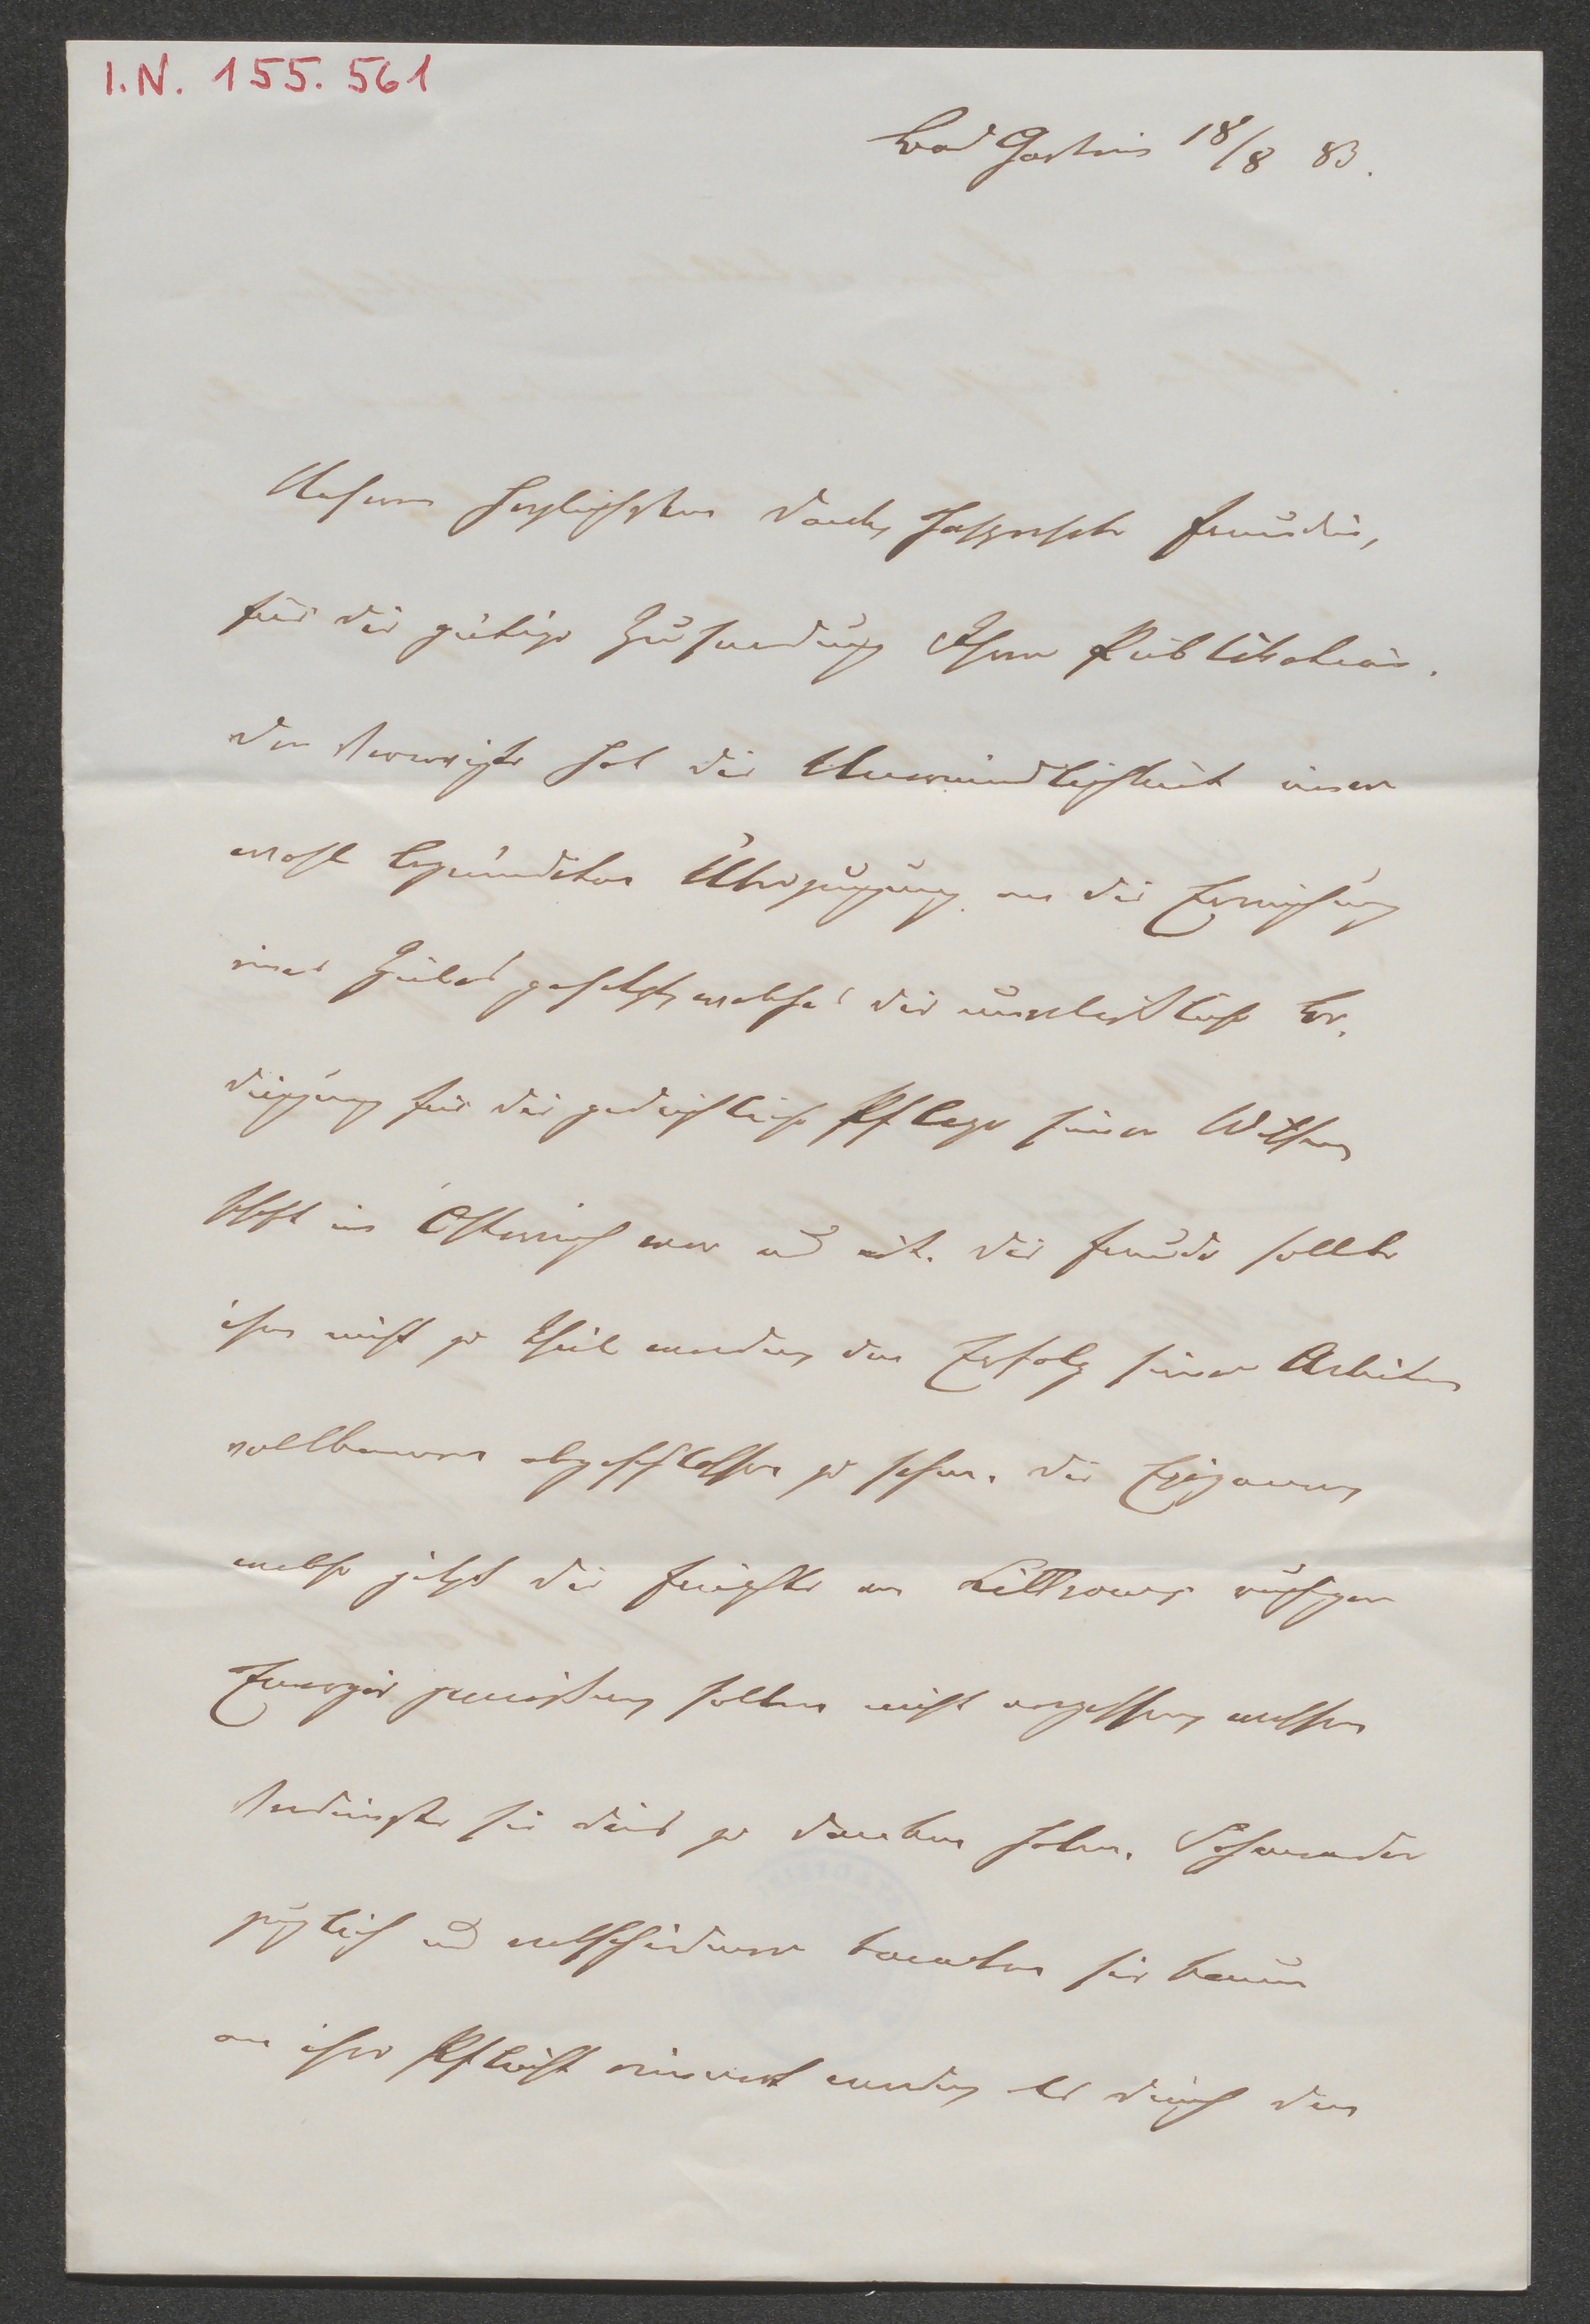 I.N. 155.561
Bad Gastein 18/8 83.
Meinen herzlichsten Dank, hochverehrte Freundin,
für die gütige Zusendung Ihrer Publikation.
Der Verewigte hat die Unermüdlichkeit einer
wohl begründeten Überzeugung an die Erreichung
eines Zieles gesetzt, welches die unerläßliche Be-
dingung für die gedeihliche Pflege seiner Wissen
schaft in Österreich war und ist. Die Freude sollte
ihm nicht zu Theil werden, den Erfolg seiner Arbeiten
vollkommen abgeschlossen zu sehen. Die Epigonen
welche jetzt die Früchte von Littrows
Energie genießen, sollten nicht vergessen, wessen
Verdienste sie dies zu danken haben.
und entschiedener konnten sie kaum
an ihre Pflicht erinnert werden als durch den